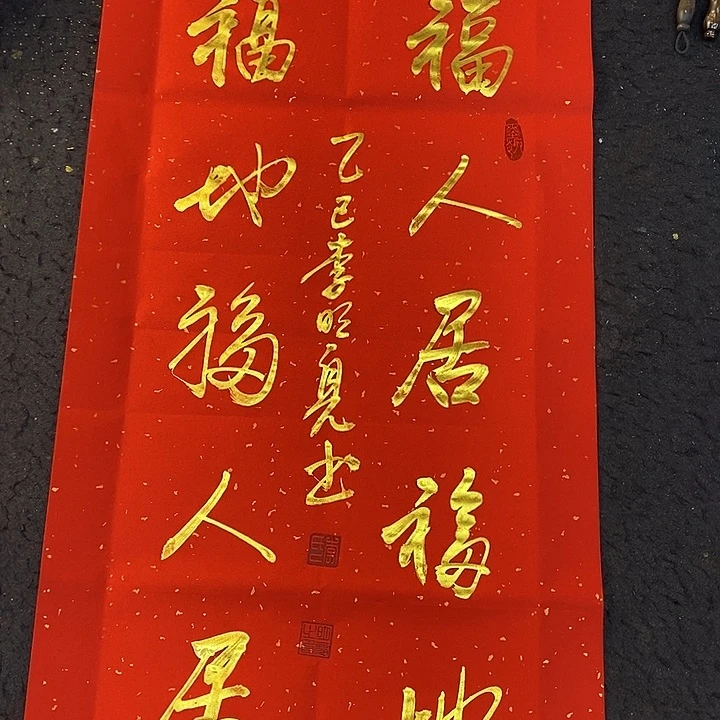 福人居福地
福地福人居
乙巳李明亮书